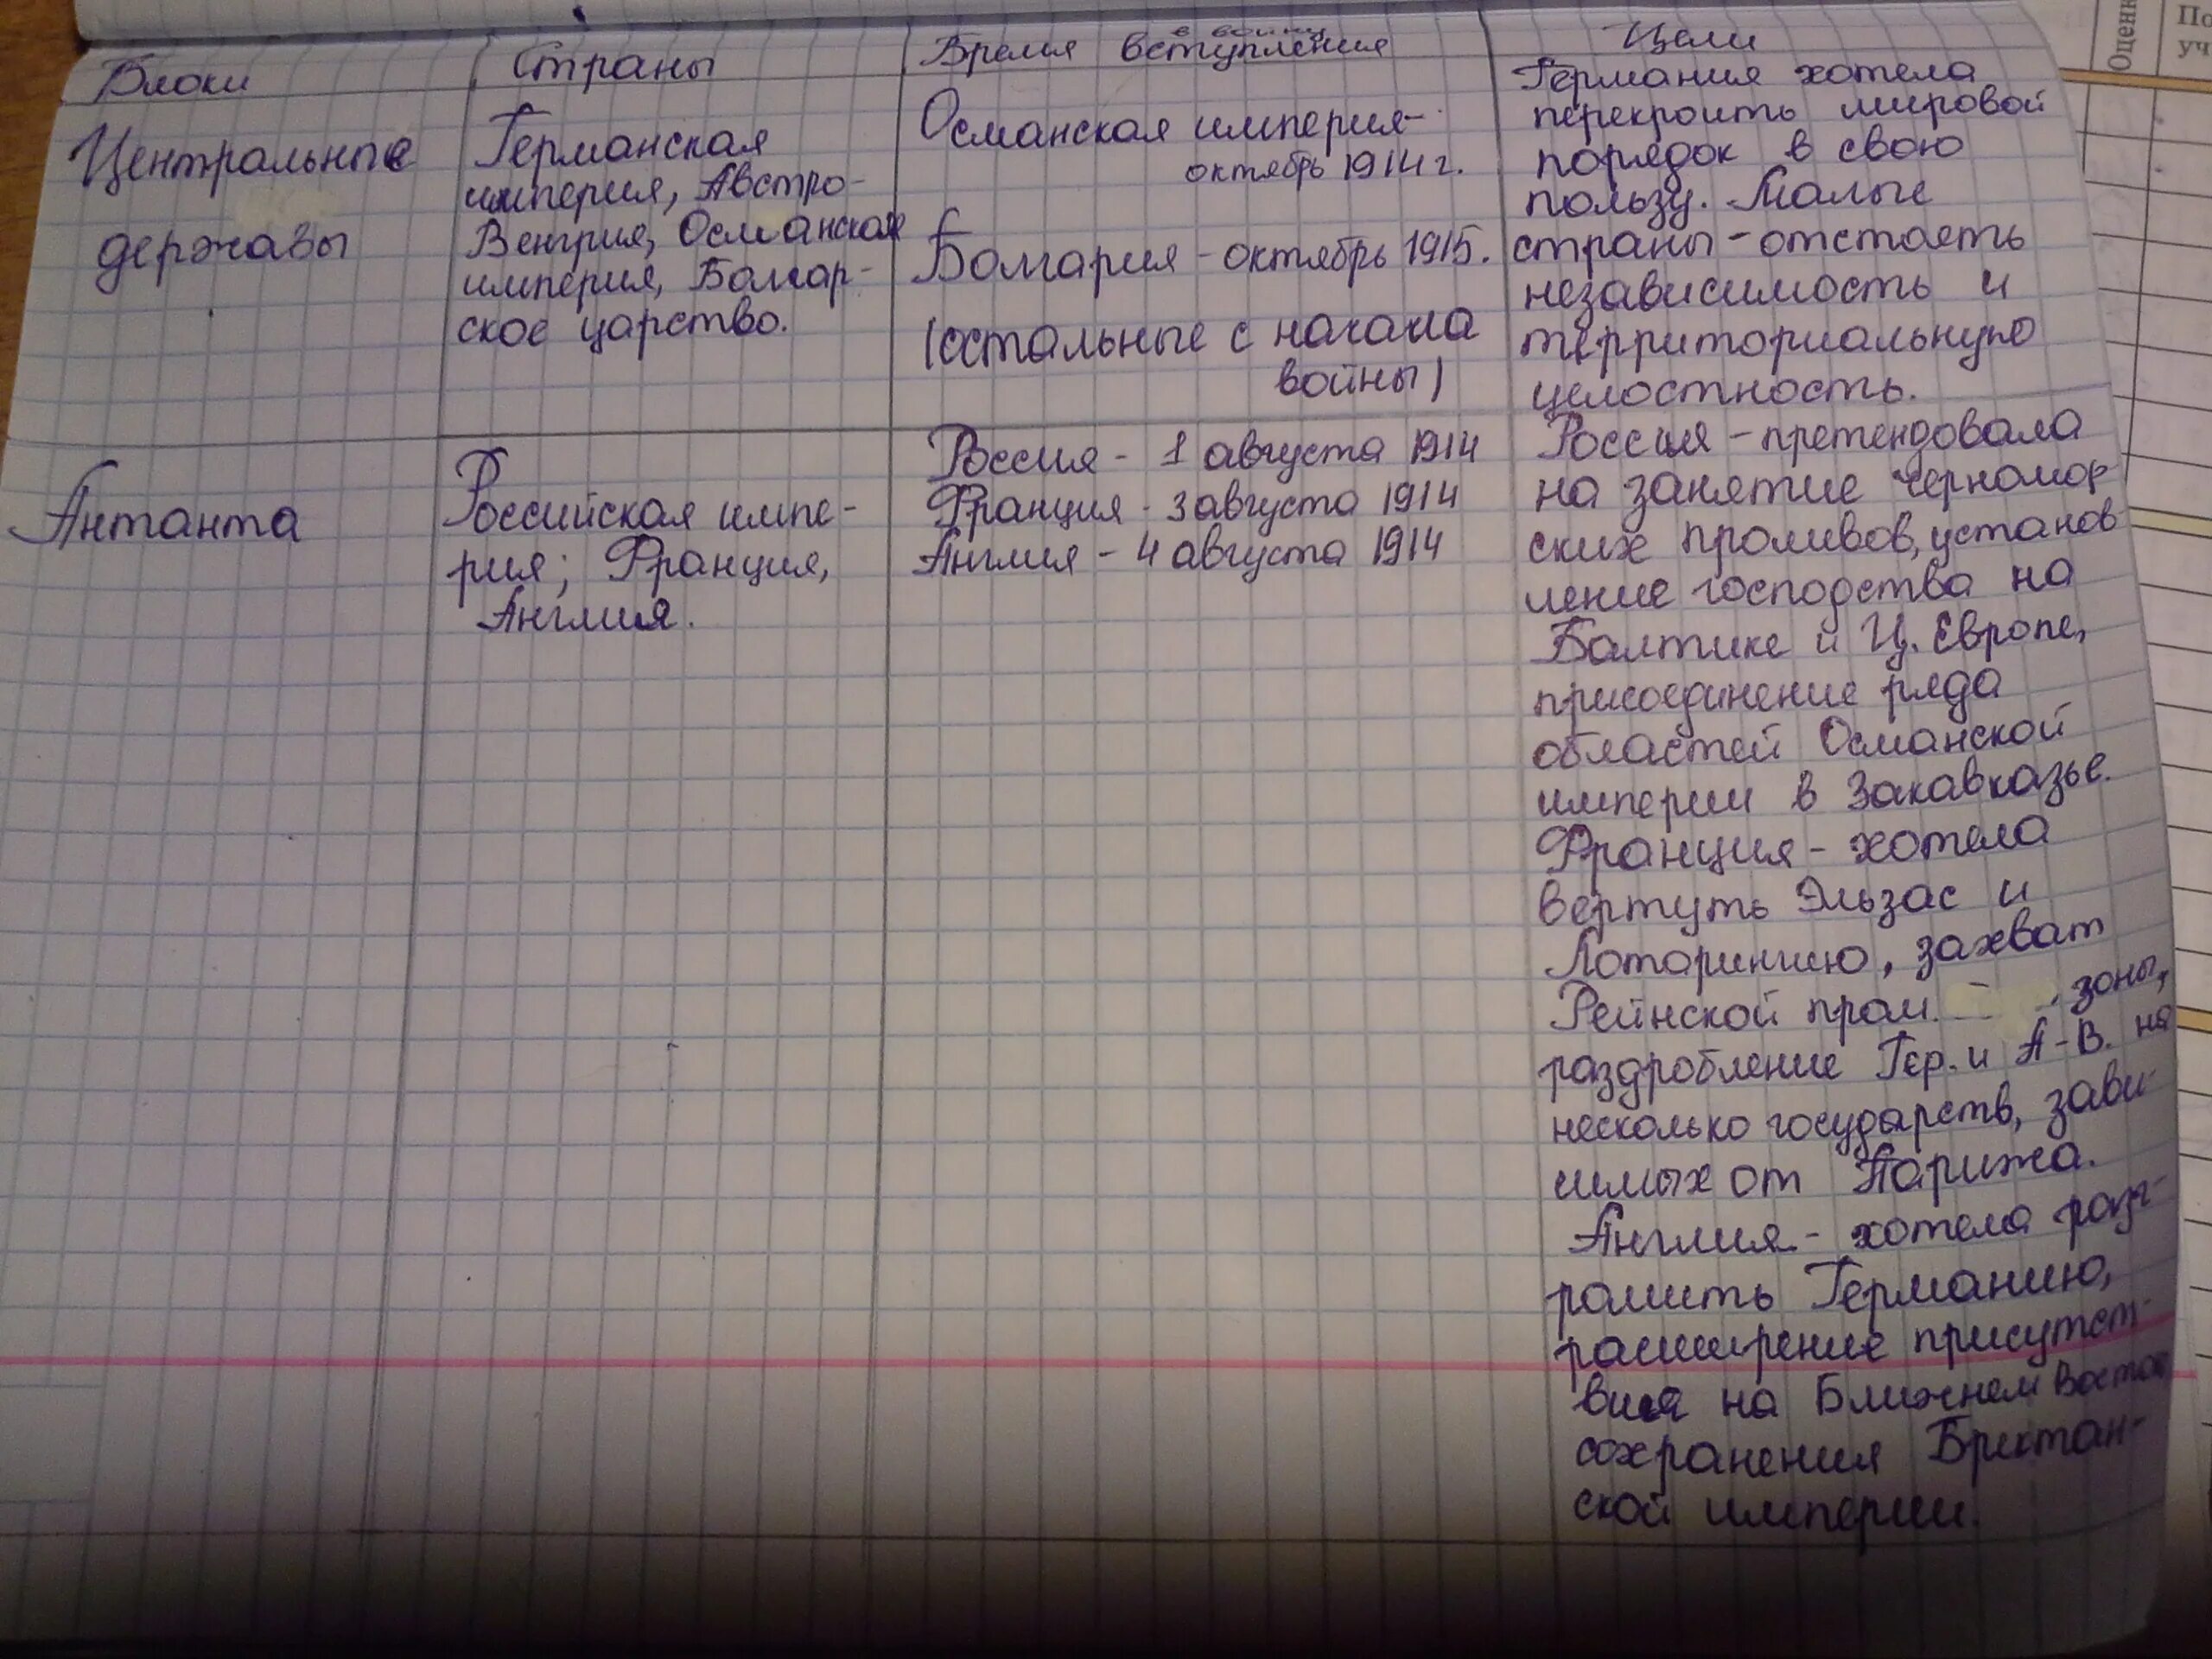 Блоки
Страны
в войну
Время вступления
Цели
Центральные
державы
Германская
империя, Австро-
Венгрия, Османская
империя, Болгар-
ское царство.
Османская империя-
октябрь 1914 г.
Болгария - октябрь 1915.
(остальные с начала
войны)
Германия хотела
перекроить мировой
порядок в свою
пользу. Малые
страны - отстоять
независимость и
территориальную
целостность.
Антанта
Российская импе-
рия; Франция,
Англия.
Россия - 1 августа 1914
Франция - 3 августа 1914
Англия - 4 августа 1914
Россия - претендовала
на занятие черномор-
ских проливов, установ
ление господства на
Балтике и Ц. Европе,
присоединение ряда
областей Османской
империи в Закавказье.
Франция - хотела
вертуть Эльзас и
Лотарингию, захват
Рейнской пром. зоны,
раздробление Гер. и А-В. на
несколько государств, зави-
симых от Парижа.
Англия - хотела разг-
ромить Германию,
расширение присутст-
вия на Ближнем Восток
сохранения Бриктан-
ской империи.
Оценк
По
уч